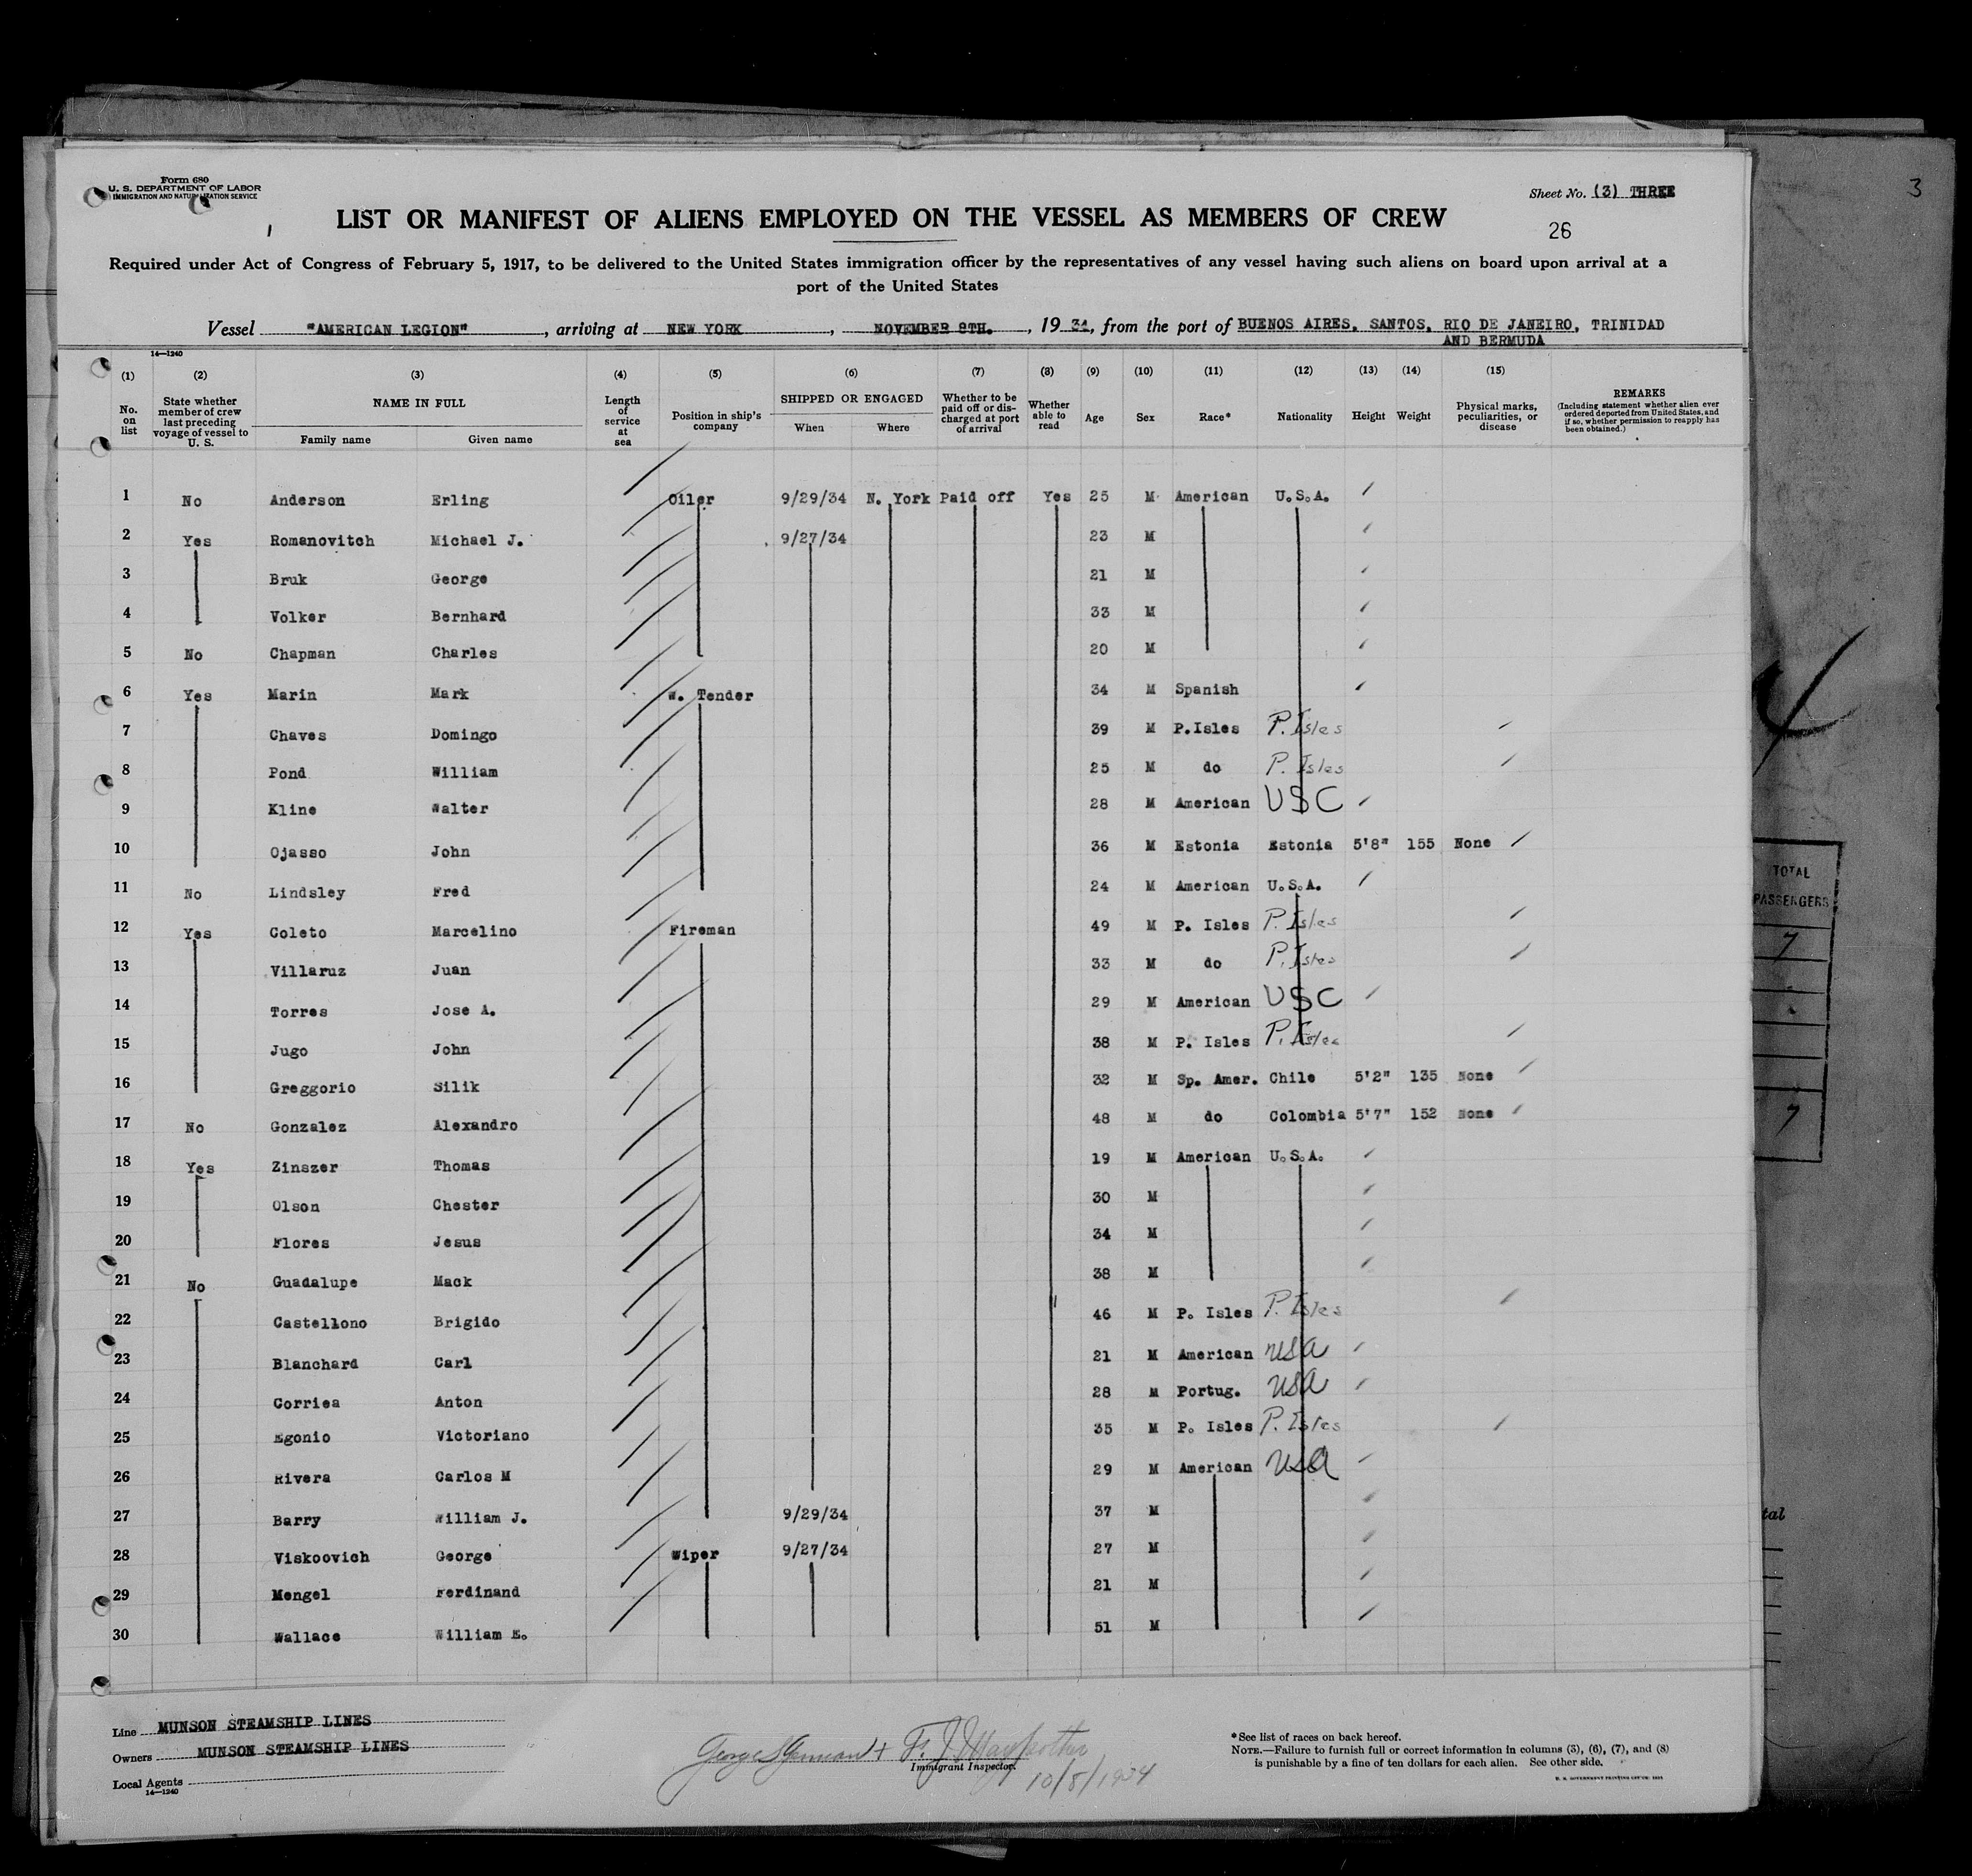 3
Form 680
U. S. DEPARTMENT OF LABOR
IMMIGRATION AND NATURALIZATION SERVICE
Sheet No. (3) THREE
LIST OR MANIFEST OF ALIENS EMPLOYED ON THE VESSEL AS MEMBERS OF CREW
26
Required under Act of Congress of February 5, 1917, to be delivered to the United States immigration officer by the representatives of any vessel having such aliens on board upon arrival at a
port of the United States
Vessel "AMERICAN LEGION", arriving at NEW YORK, NOVEMBER 8TH., 1934, from the port of BUENOS AIRES, SANTOS, RIO DE JANEIRO, TRINIDAD
AND BERMUDA
14—1240
(1) (2) (3) (4) (5) (6) (7) (8) (9) (10) (11) (12) (13) (14) (15)
No. on list
State whether member of crew last preceding voyage of vessel to U. S.
NAME IN FULL
Family name
Given name
Length of service at sea
Position in ship's company
SHIPPED OR ENGAGED
When
Where
Whether to be paid off or discharged at port of arrival
Whether able to read
Age
Sex
Race*
Nationality
Height
Weight
Physical marks, peculiarities, or disease
REMARKS
(Including statement whether alien ever ordered deported from United States, and if so, whether permission to reapply has been obtained.)
1 No Anderson Erling Oiler 9/29/34 N. York Paid off Yes 25 M American U.S.A.
2 Yes Romanovitch Michael J. 9/27/34 23 M
3 Bruk George 21 M
4 Volker Bernhard 33 M
5 No Chapman Charles 20 M
6 Yes Marin Mark W. Tender 34 M Spanish
7 Chaves Domingo 39 M P.Isles P. Isles
8 Pond William 25 M do P. Isles
9 Kline Walter 28 M American USC
10 Ojasso John 36 M Estonia Estonia 5'8" 155 None
11 No Lindsley Fred 24 M American U.S.A.
12 Yes Coleto Marcelino Fireman 49 M P. Isles P. Isles
13 Villaruz Juan 33 M do P. Isles
14 Torres Jose A. 29 M American USC
15 Jugo John 38 M P. Isles P. Isles
16 Greggorio Silik 32 M Sp. Amer. Chile 5'2" 135 None
17 No Gonzalez Alexandro 48 M do Colombia 5'7" 152 None
18 Yes Zinszer Thomas 19 M American U.S.A.
19 Olson Chester 30 M
20 Flores Jesus 34 M
21 No Guadalupe Mack 38 M
22 Castellono Brigido 46 M P. Isles P. Isles
23 Blanchard Carl 21 M American USA
24 Corriea Anton 28 M Portug. USA
25 Egonio Victoriano 35 M P. Isles P. Isles
26 Rivera Carlos M 29 M American USA
27 Barry William J. 9/29/34 37 M
28 Viskoovich George Wiper 9/27/34 27 M
29 Mengel Ferdinand 21 M
30 Wallace William E. 51 M
TOTAL
PASSENGERS
7
7
tal
Line MUNSON STEAMSHIP LINES
Owners MUNSON STEAMSHIP LINES
Local Agents
14—1240
Immigrant Inspector.
10/8/1934
*See list of races on back hereof.
NOTE.—Failure to furnish full or correct information in columns (3), (6), (7), and (8)
is punishable by a fine of ten dollars for each alien. See other side.